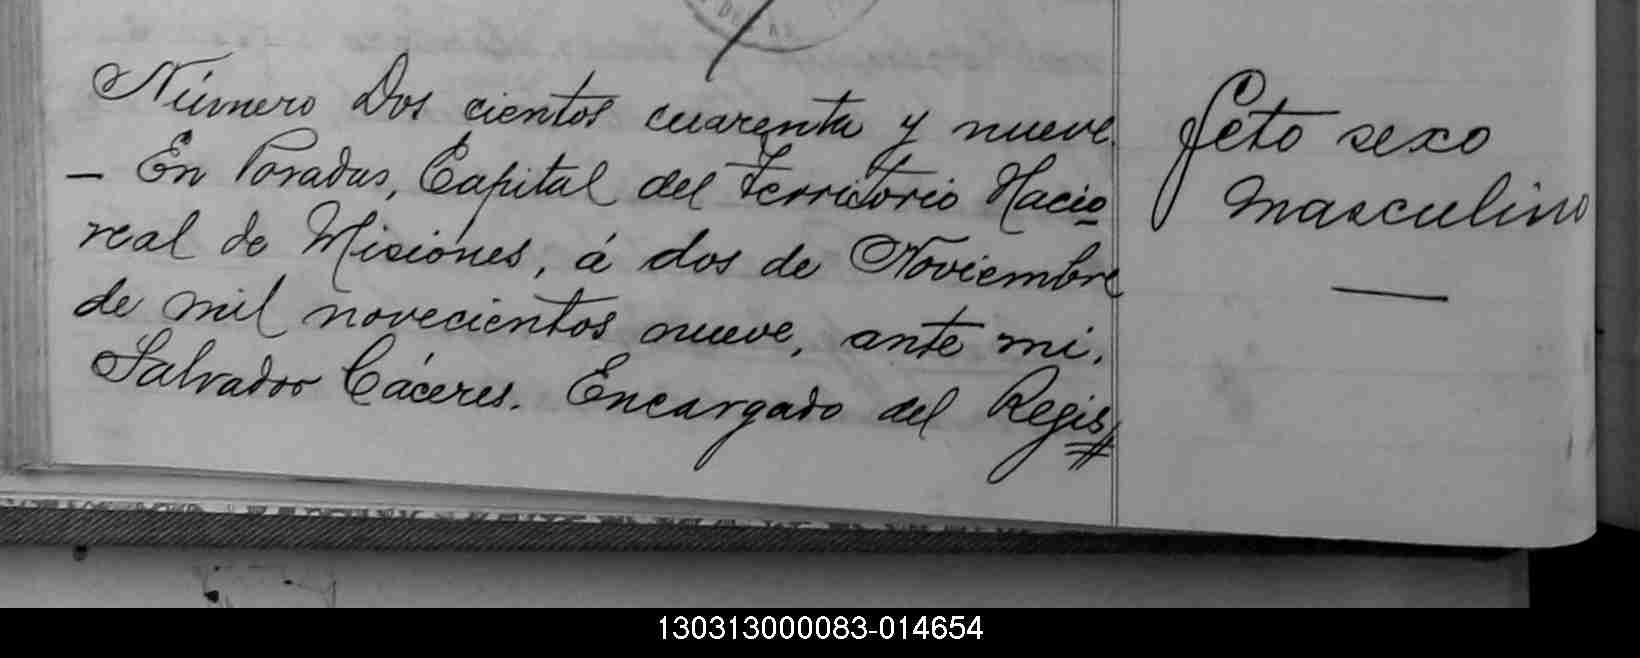 Número Dos cientos cuarenta y nueve.
— En Posadas, Capital del Territorio Nacio
nal de Misiones, á dos de Noviembre
de mil novecientos nueve, ante mi,
Salvador Cáceres. Encargado del Regis
feto sexo
masculino
130313000083-014654